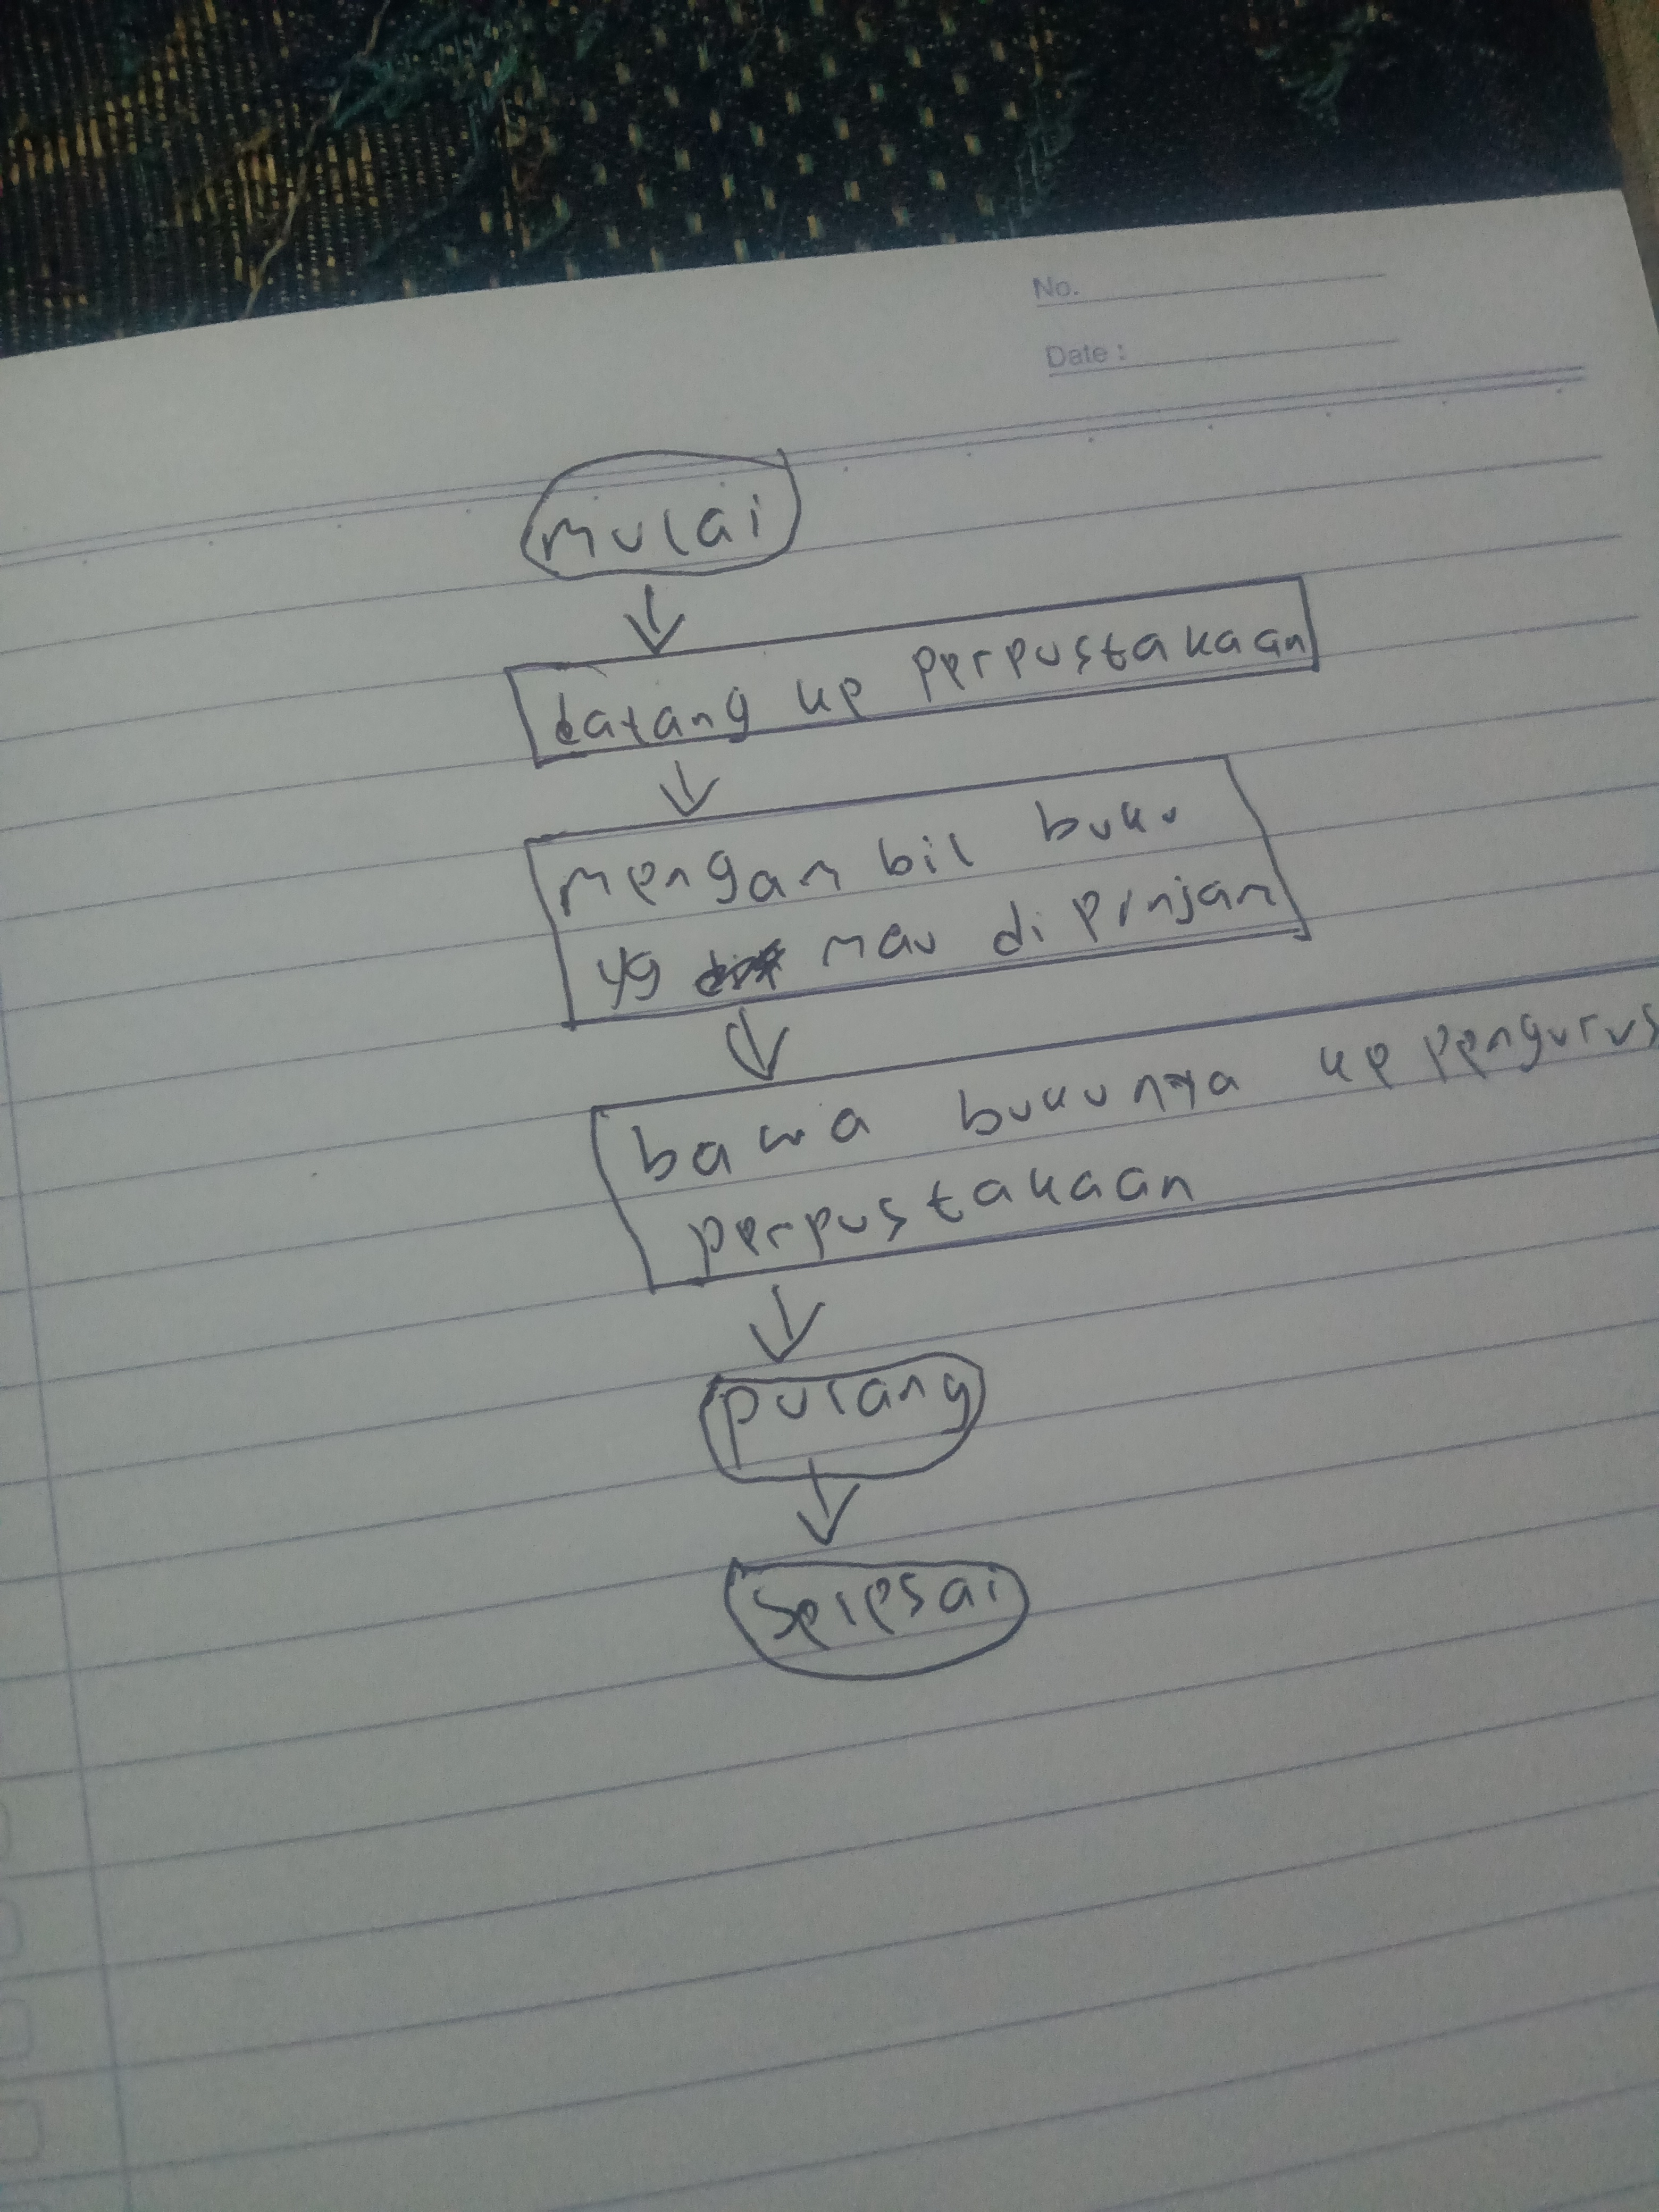 No.
Date :
mulai
datang ke perpustakaan
mengambil buku
yg mau di pinjam
bawa bukunya ke pengurus
perpustakaan
pulang
Selesai